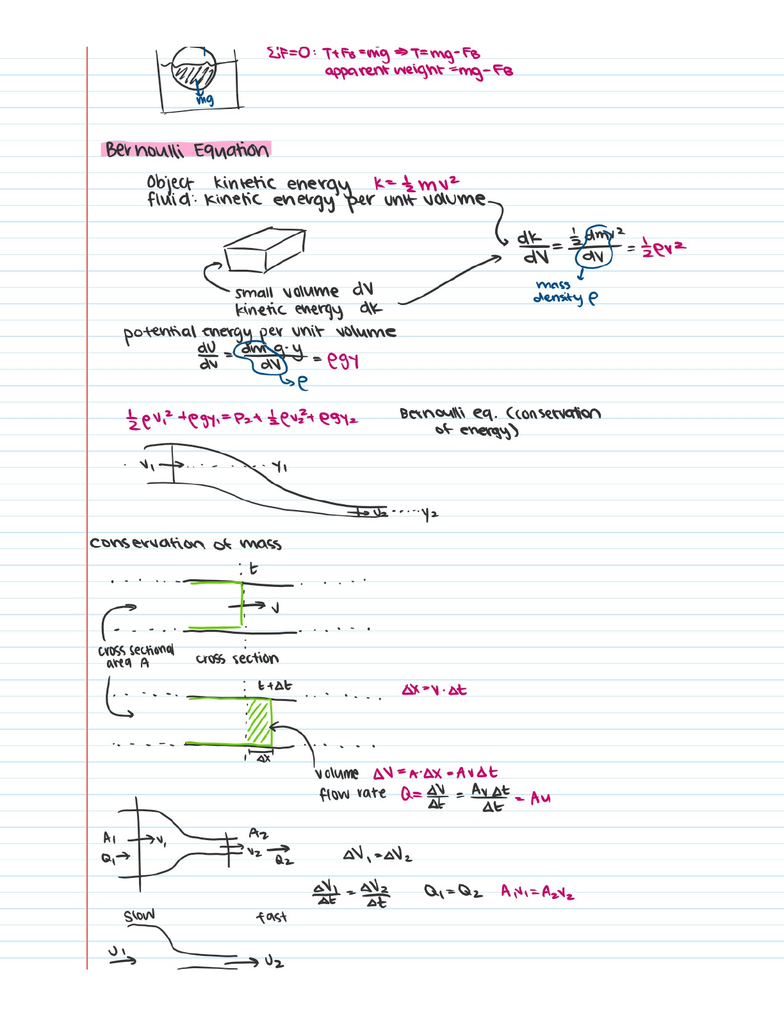 ΣF=0: T+FB=mg ⇒ T=mg-FB
apparent weight =mg-FB
mg
Bernoulli Equation
Object kintetic energy K=½mv²
fluid: kinetic energy per unit volume
dk/dV = ½dmv²/dV = ½ρv²
mass
density ρ
small volume dV
kinetic energy dk
potential energy per unit volume
dU/dV = dm g·y/dV = ρgy
ρ
½ρv₁²+ρgy₁=P₂+½ρv₂²+ρgy₂
Bernoulli eq. (conservation
of energy)
v₁ y₁
v₂ y₂
conservation of mass
t
v
cross sectional
area A
cross section
t+Δt
Δx=v·Δt
Δx
volume ΔV=A·Δx=AvΔt
flow rate Q=ΔV/Δt = AvΔt/Δt = Au
A₁ v₁ A₂
Q₁ v₂ Q₂
ΔV₁=ΔV₂
ΔV₁/Δt = ΔV₂/Δt Q₁=Q₂ A₁v₁=A₂v₂
slow fast
v₁ v₂